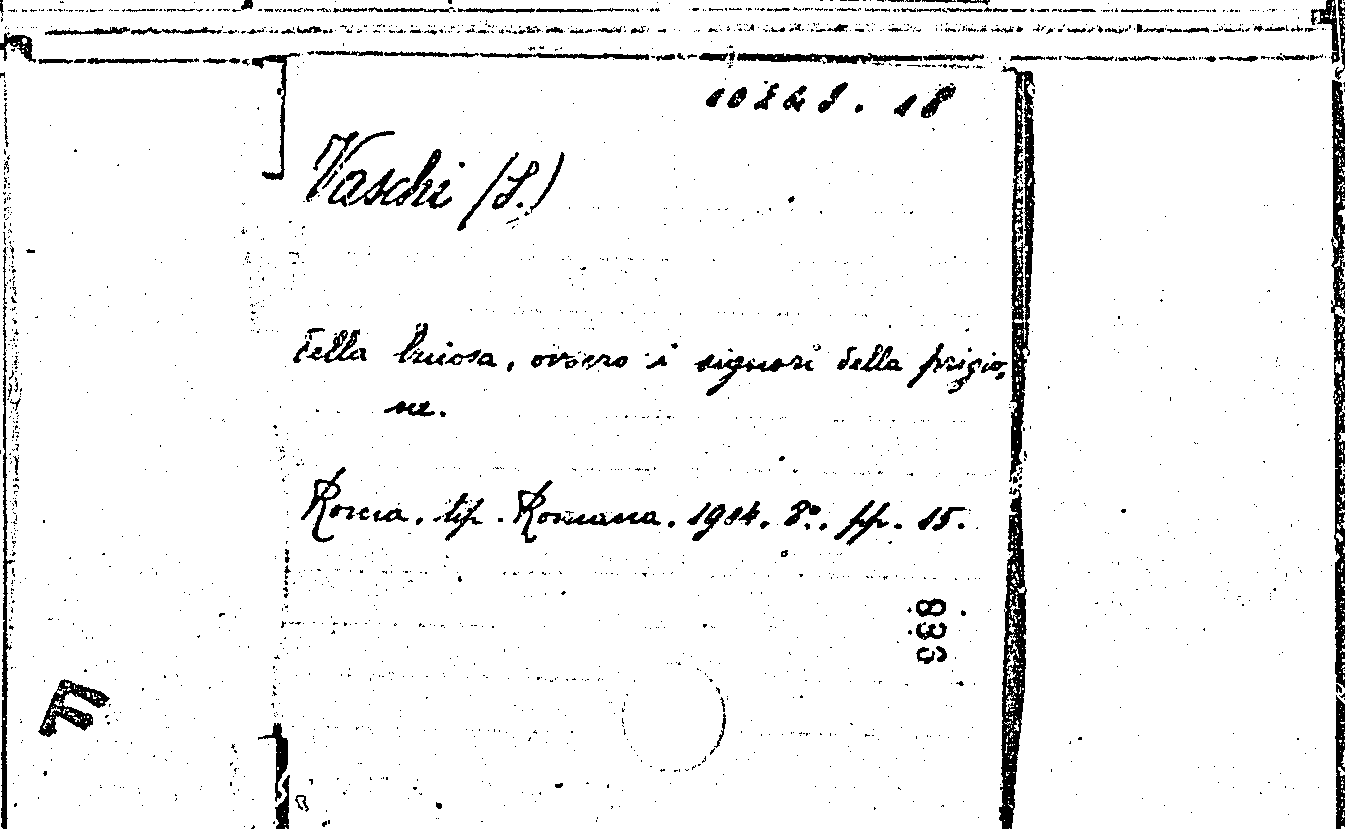 10249. 18
Vaschi (S.)
Nella buiosa, ovvero i signori della prigio,
ne.
Roma. tip. Romana. 1914. 8º. pp. 15.
836
F